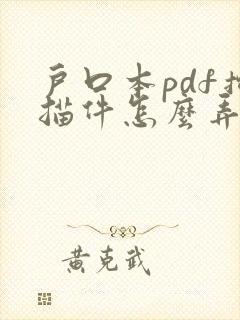 户口本pdf扫
描件怎麼弄
黄克武